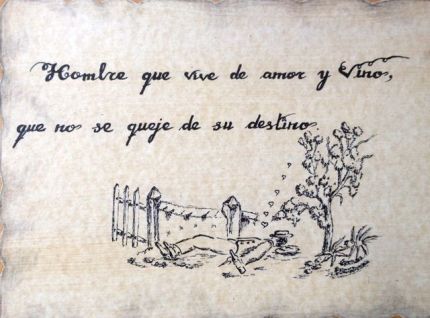 Hombre que vive de amor y Vino,
que no se queje de su destino